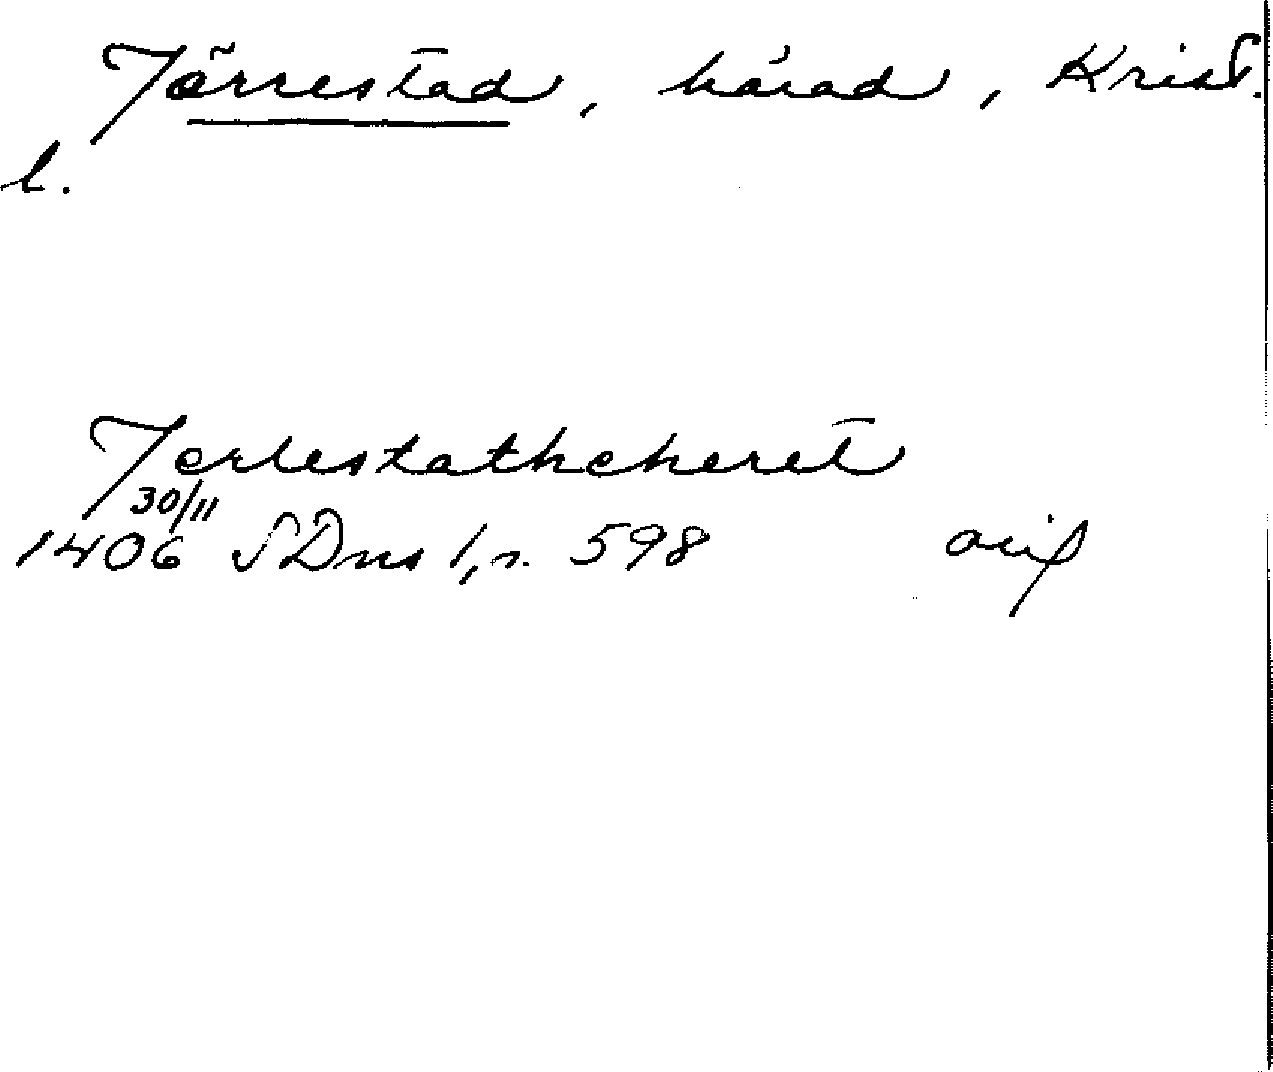 Järrestad, härad, Krist.
l.
Jerlestatheheret
30/11
1406 SDns 1, n. 598 avis